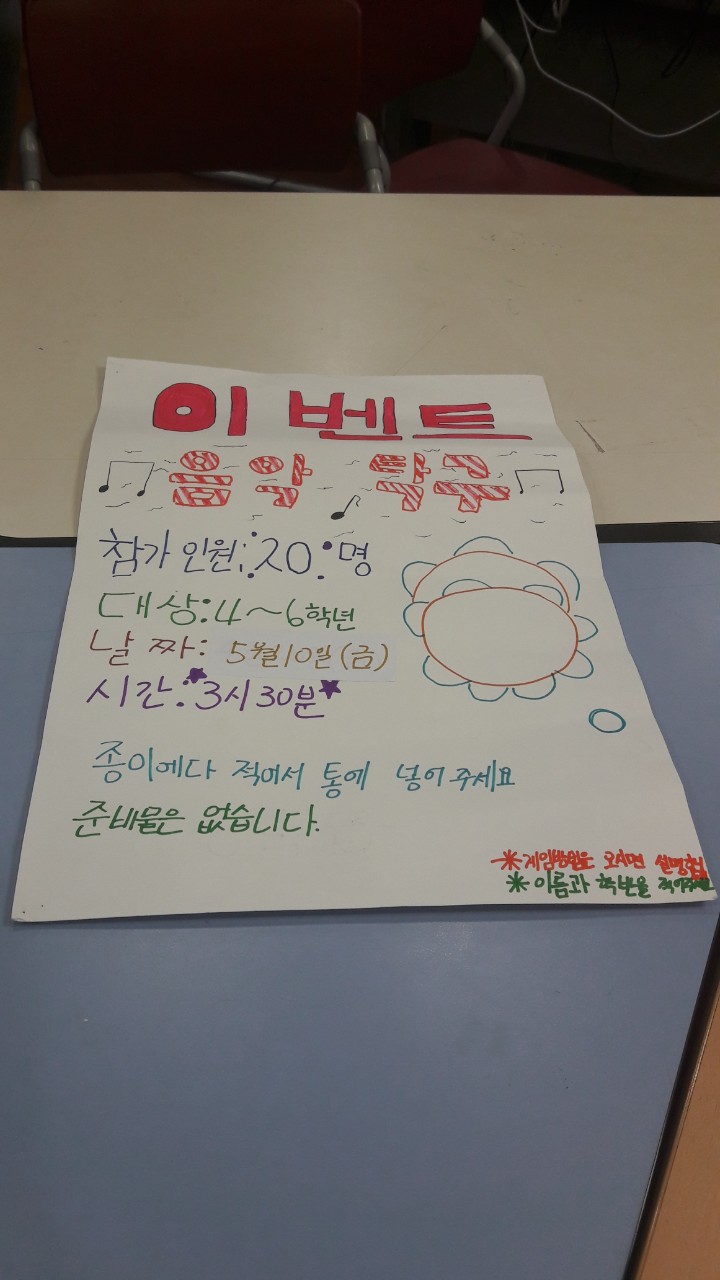 이벤트
음악 탁구
참가 인원: 20명
대상: 4~6학년
날짜: 5월10일(금)
시간: 3시30분
종이에다 적어서 통에 넣어주세요
준비물은 없습니다.
*게임방법은 오시면 설명
*이름과 학반을 적어주세요